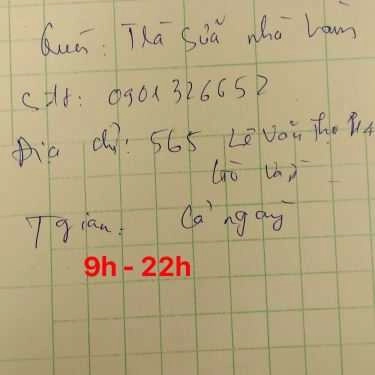 Quán: Trà sữa nhà làm
Sđt: 0901326652
Địa chỉ: 565 Lê Văn Thọ P14
Gò Vấp
Tgian: Cả ngày
9h - 22h